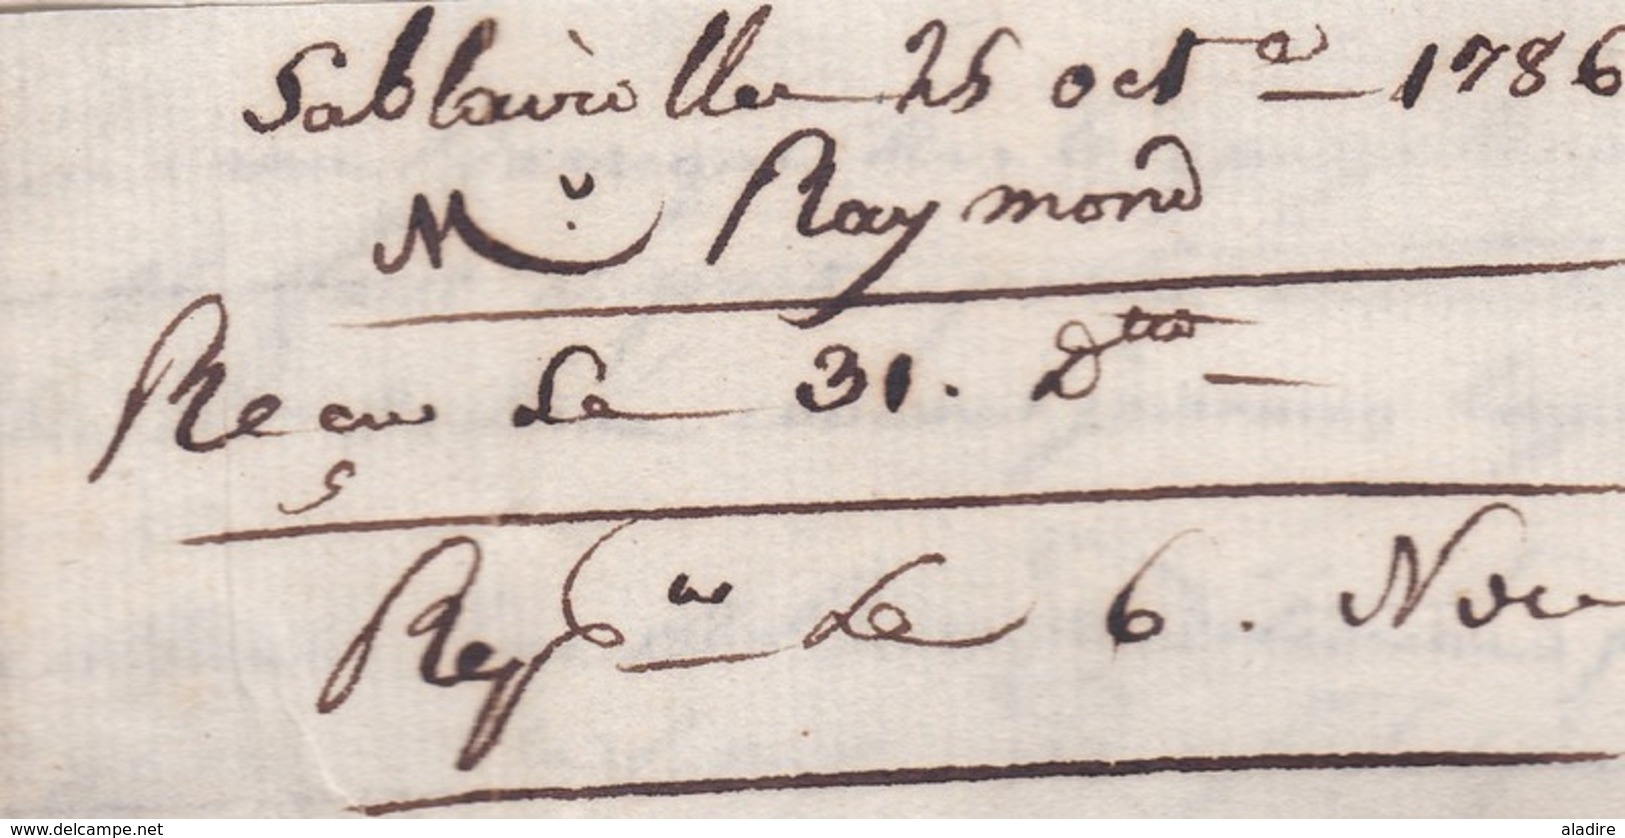 Sablairoller 25 oct.e 1786
Mr. Raymond
Reçu Le 31. Dtto
Rep.du Le 6. Nore
www.delcampe.net
aladire